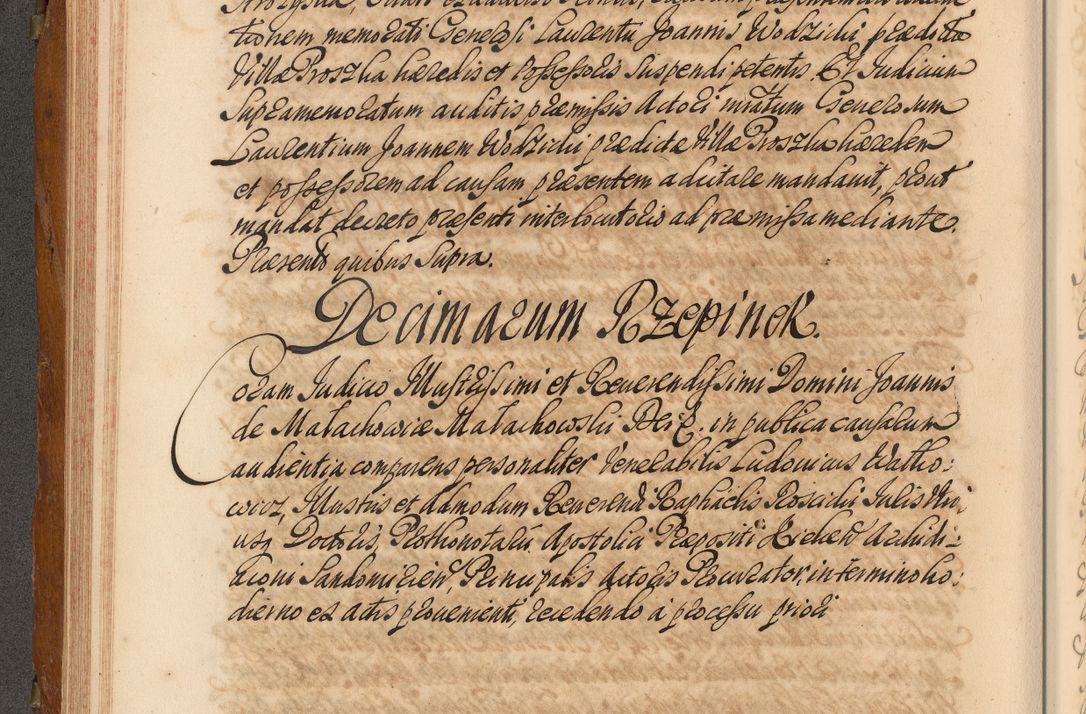 tionem memorati Generosi Laurentii Joannis Wodzicki prædictæ
Villæ Proszka hæredis et Possessoris Suspendi petentis. Et Judicium
Supramemoratum auditis præmissis Actori mratum Generosum
Laurentium Joannem Wodzicki prædictæ Villæ Proszka hæredem
et possessorem ad causam præsentem adcitare mandavit, prout
mandat decreto præsenti interlocutorio ad præmissa mediante.
Præsentib quibus Supra.
Decimarum Rzepinek.
Coram Judicio Illustrissimi et Reverendissimi Domini Joannis
de Małachowice Małachowski Dei G. in publica causarum
audientia comparens personaliter Venerabilis Ludovicus Watho:
wicz, Illustris et Admodum Reverendi Raphaelis Roscidii Juris Utri
usq Doctoris, Prothonotarii Apostolici Præpositi Kielcen Archidi:
aconi Sandomirien, Principalis Actoris Procurator, in termino ho:
dierno ex actis provenienti, recedendo á processu priori